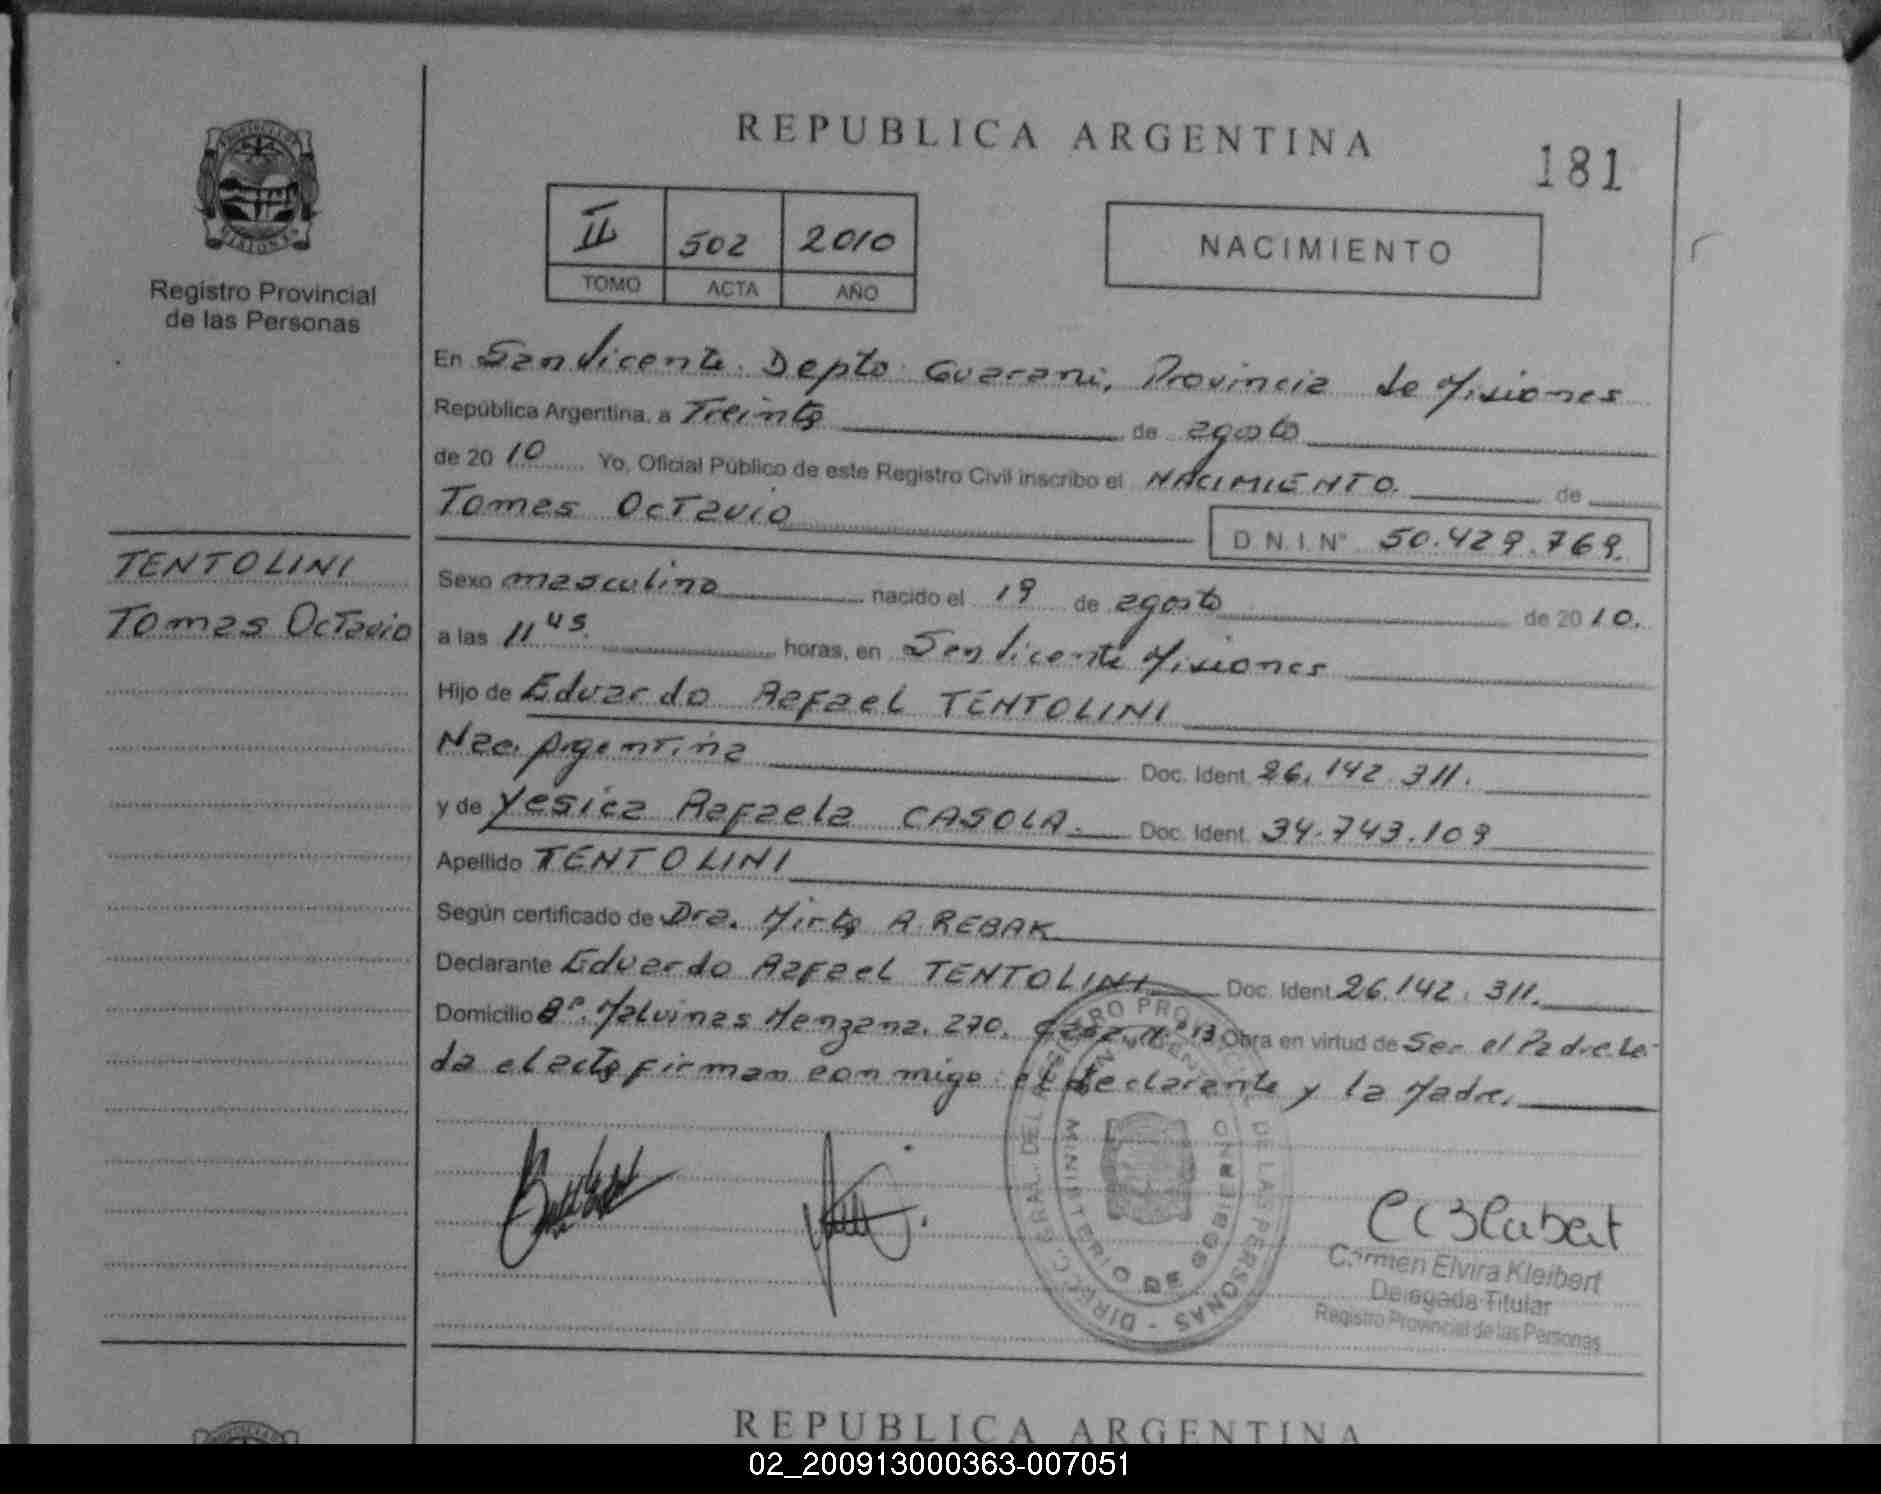 REPUBLICA ARGENTINA
181
II 502 2010
TOMO ACTA AÑO
NACIMIENTO
MISIONES
Registro Provincial
de las Personas
En San Vicente Depto Guarani, Provincia de Misiones
República Argentina, a Treinta de agosto
de 2010 Yo, Oficial Público de este Registro Civil inscribo el NACIMIENTO. de
Tomas Octavio D.N.I. Nº 50.429.769.
TENTOLINI
Tomas Octavio
Sexo masculino nacido el 19 de agosto de 2010.
a las 11 45 horas, en San Vicente Misiones
Hijo de Eduardo Rafael TENTOLINI
Nac. Argentina Doc. Ident. 26.142.311.
y de Yesica Rafaela CASOLA. Doc. Ident. 34.743.109
Apellido TENTOLINI
Según certificado de Dra. Mirta A. REBAK
Declarante Eduardo Rafael TENTOLINI Doc. Ident. 26.142.311.
Domicilio Bº. Malvinas Manzana. 270. Casa Nº 13 Obra en virtud de Ser el Padre Lei-
da el acta firman conmigo el declarante y la Madre.
DIRECC. GRAL. DEL REGISTRO PROVINCIAL DE LAS PERSONAS
MINISTERIO DE GOBIERNO
Carmen Elvira Kleibert
Delegada Titular
Registro Provincial de las Personas
REPUBLICA ARGENTINA
02_200913000363-007051